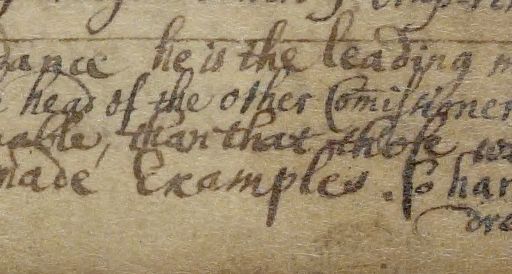 he is the leading
head of the other Comissioner
able, than that those
made Examples. So har
dre